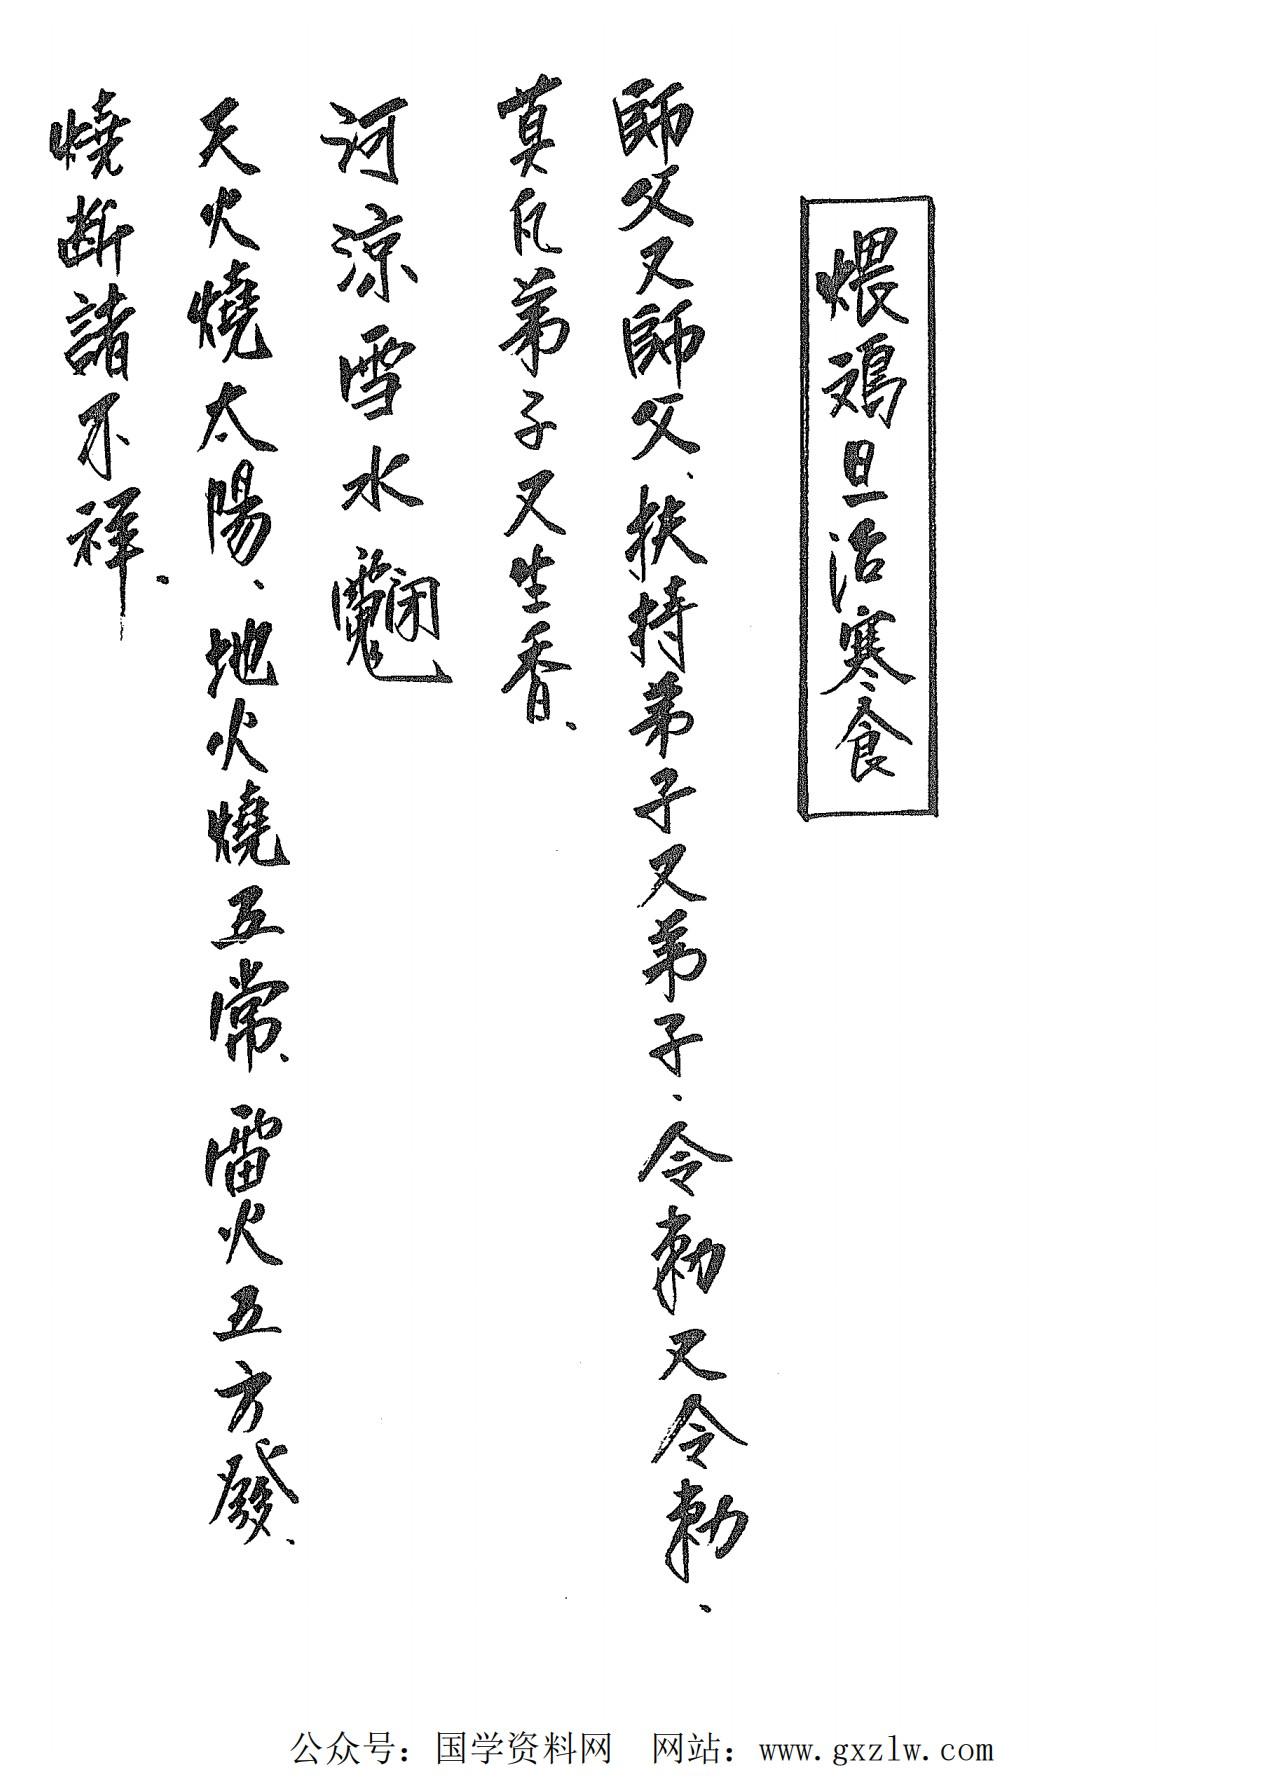 煨鸡旦治寒食
師父又師父、扶持弟子又弟子、令勅又令勅、
莫弟子又生香、
河涼雪水
天火燒太陽、地火燒五常、雷火五方發、
燒断諸不祥、
公众号：国学资料网 网站：www.gxzlw.com